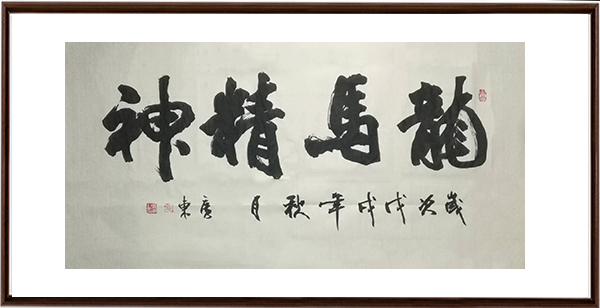 龍馬精神
歲次戊戌年秋月 東